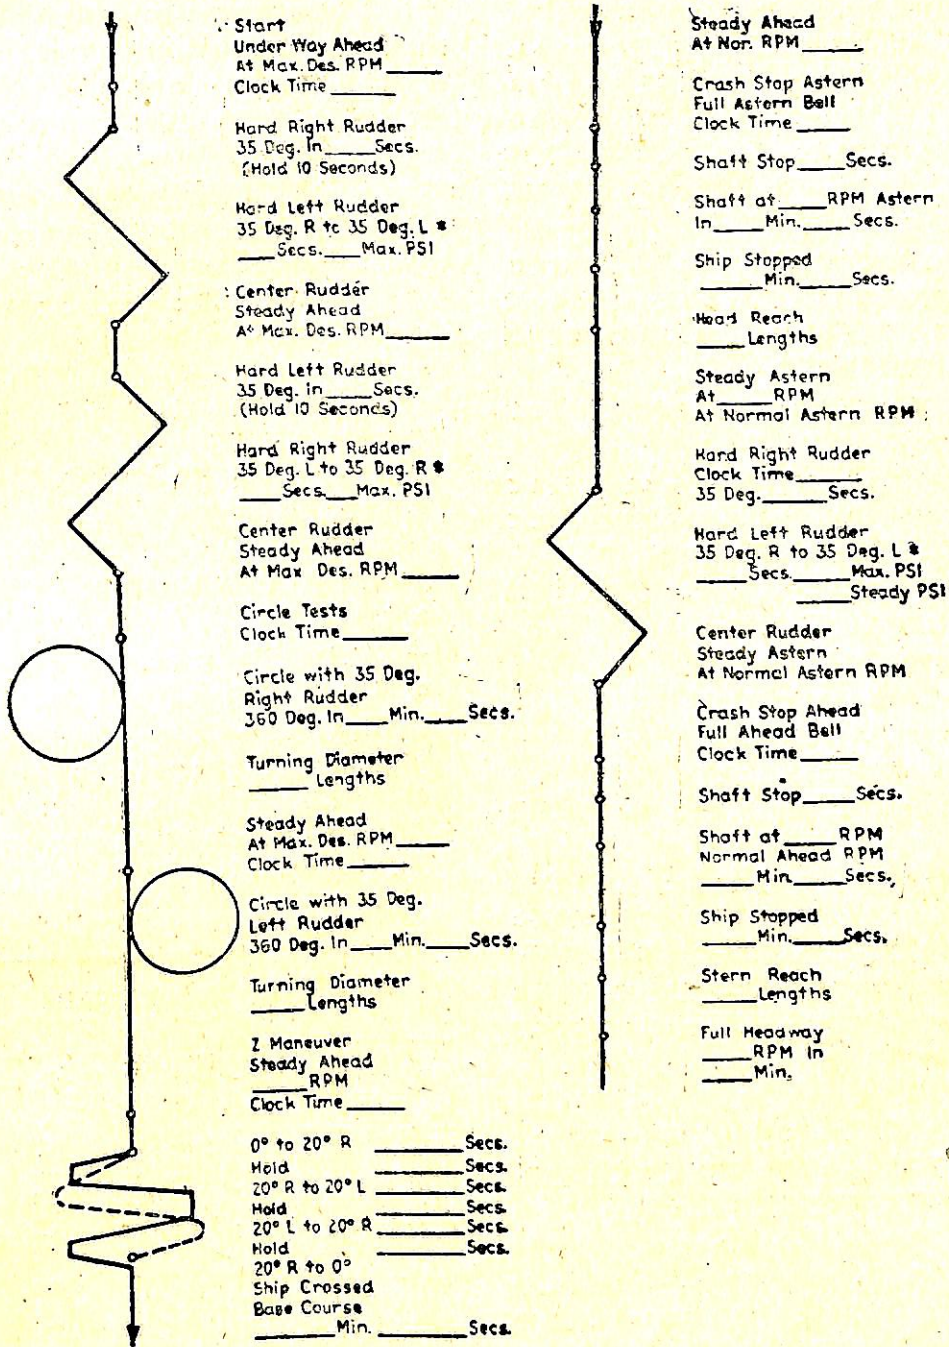 Start
Under Way Ahead
At Max. Des. RPM_____
Clock Time_____
Hard Right Rudder
35 Deg. In____Secs.
(Hold 10 Seconds)
Hard Left Rudder
35 Deg. R to 35 Deg. L *
____Secs.____Max. PSI
Center Rudder
Steady Ahead
At Max. Des. RPM_____
Hard Left Rudder
35 Deg. in____Secs.
(Hold 10 Seconds)
Hard Right Rudder
35 Deg. L to 35 Deg. R *
____Secs.____Max. PSI
Center Rudder
Steady Ahead
At Max Des. RPM_____
Circle Tests
Clock Time_____
Circle with 35 Deg.
Right Rudder
360 Deg. In____Min.____Secs.
Turning Diameter
_____Lengths
Steady Ahead
At Max. Des. RPM_____
Clock Time_____
Circle with 35 Deg.
Left Rudder
360 Deg. In____Min.____Secs.
Turning Diameter
_____Lengths
Z Maneuver
Steady Ahead
_____RPM
Clock Time_____
0° to 20° R ________Secs.
Hold ________Secs.
20° R to 20° L ________Secs.
Hold ________Secs.
20° L to 20° R ________Secs.
Hold ________Secs.
20° R to 0°
Ship Crossed
Base Course
_______Min. _______Secs.
Steady Ahead
At Nor. RPM_____
Crash Stop Astern
Full Astern Bell
Clock Time_____
Shaft Stop____Secs.
Shaft at____RPM Astern
In____Min.____Secs.
Ship Stopped
_____Min.____Secs.
Head Reach
____Lengths
Steady Astern
At____RPM
At Normal Astern RPM
Hard Right Rudder
Clock Time_____
35 Deg._____Secs.
Hard Left Rudder
35 Deg. R to 35 Deg. L *
____Secs.____Max. PSI
____Steady PSI
Center Rudder
Steady Astern
At Normal Astern RPM
Crash Stop Ahead
Full Ahead Bell
Clock Time_____
Shaft Stop____Secs.
Shaft at____RPM
Normal Ahead RPM
____Min.____Secs.
Ship Stopped
____Min.____Secs.
Stern Reach
____Lengths
Full Headway
____RPM In
____Min.